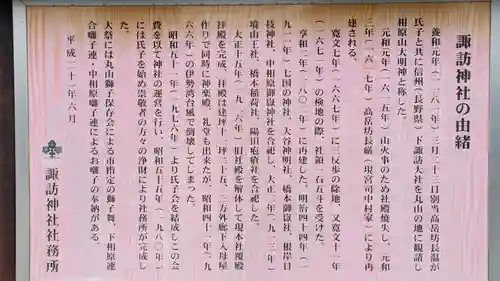 諏訪神社の由緒
養和元年(一一八一年)三月二十三日別当高岳坊長温が
氏子と共に信州(長野県)下諏訪大社を丸山の地に観請し
相原山大明神と称した。
元和元年(一六一五年)山火事のため社殿焼失し、元和
三年(一六一七年)高岳坊長巌(現宮司中村家)により再
建される。
寛文七年(一六六七年)に三反歩の除地、又寛文十一年
(一六七一年)の検地の際、社領一石五斗を受けた。
享和一年(一八〇一年)に再建した。明治四十四年(一
九一一年)七国の神社、大谷神明社、橋本御嶽社、根岸日
枝神社、中相原御嶽神社を合祀し、大正二年(一九一三年)
境山王社、橋本稲荷社、陽田疱瘡社を合祀した。
大正十五年(一九二六年)旧社殿を解体して現本社覆殿
拝殿を完成、拝殿は建坪十一坪二十五、三方外廊下入母屋
作りで同時に神楽殿、礼堂も出来たが、昭和四十一年(一九
六六年)の伊勢湾台風で倒壊してしまった。
昭和五十一年(一九七六年)より氏子会を結成しこの会
費を以て神社の運営を行い、昭和五十五年(一九八〇年)
には氏子を始め崇敬者の方々の浄財により社務所が完成し
た。
大祭には丸山獅子保存会による市指定の獅子舞、下相原連
合囃子連・中相原囃子連によるお囃子の奉納がある。
平成二十一年六月
諏訪神社社務所